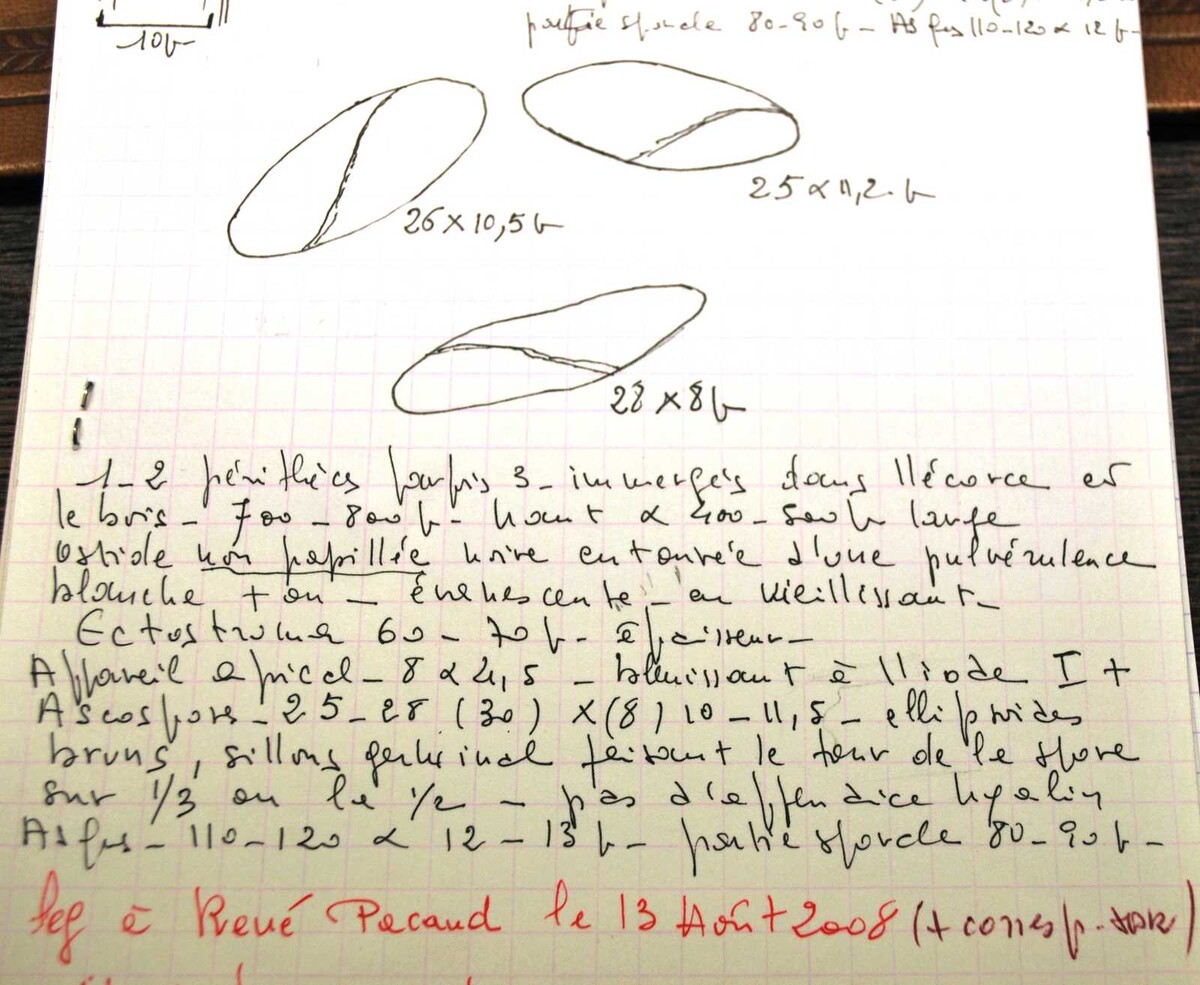 10µ
partie sporale 80-90 µ - Asques 110-120 × 12 µ -
25 × 11,2 µ
26 × 10,5 µ
28 × 8 µ
1-2 périthèces parfois 3 - immergés dans l'écorce et
le bois - 700 - 800 µ - haut × 400 - 500 µ large
ostiole non papillée noire entourée d'une pulvérulence
blanche + ou - évanescente - en vieillissant -
Ectostroma 60 - 70 µ - épaisseur -
Appareil apical - 8 × 4,5 - bleuissant à l'iode I +
Ascospore - 25 - 28 (30) × (8) 10 - 11,5 - elliptiques
bruns, sillons germinal faisant le tour de la spore
sur 1/3 ou le 1/2 - pas d'appendice hyalin
Asques - 110 - 120 × 12 - 13 µ - partie sporale 80 - 90 µ -
leg à René Pacaud le 13 Août 2008 (+ corresp.